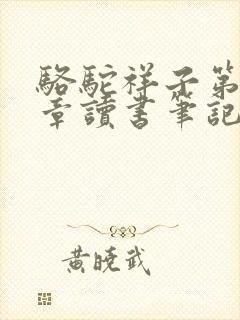 駱駝祥子第
章讀書筆記
黃曉武